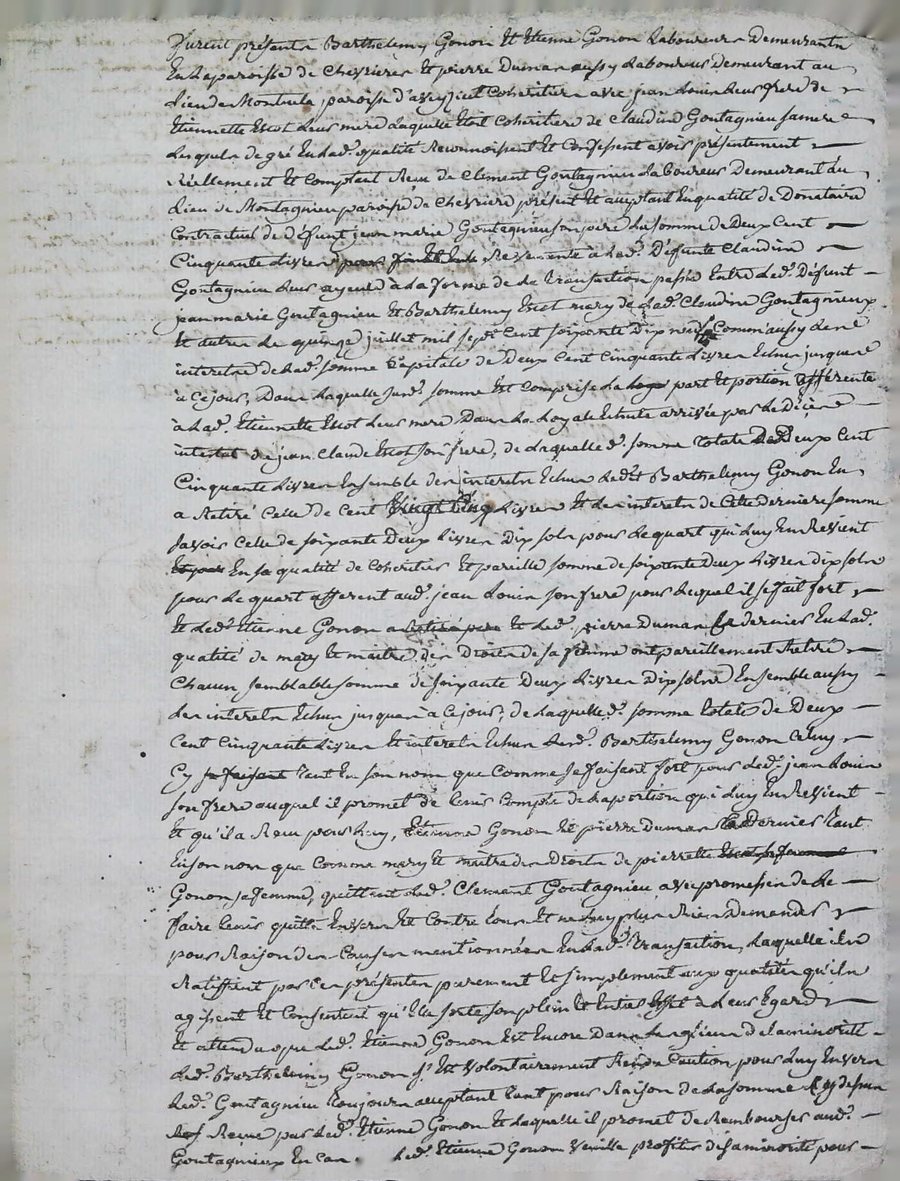 furent présents Barthelemy Gonon Et Etienne Gonon Laboureurs Demeurants
En La paroisse de Chevrieres Et pierre Dumas aussy Laboureur Demeurant au
Lieu de paroisse d'aveyzieu Coheritiers avec jean Louis Leur frere de
Etiennette Escot Leur mere Laquelle Etoit Coheritiere de Claudine Gontagnieu sa mere
Lesquels de gré En Lad.e qualité Reconnoissent Et Confessent avoir présentement
Réellement Et Comptant Reçu de Clement Gontagnieu Laboureur Demeurant du
Lieu de Montagnieu paroisse de Chevriere présent Et acceptant En qualité de Donataire
Contractuel de deffunt jean marie Gontagnieu son pere La somme de Deux Cent
Cinquante Livres Revenante à Lad.e Deffunte Claudine
Gontagnieu Leur ayeule à La forme de La transaction passée Entre Led.t Deffunt
jean marie Gontagnieu Et Barthelemy Escot mary de Lad.e Claudine Gontagnieux
Et autres Le quinze juillet mil sept Cent soixante Dix neuf Comm'aussy Les
interets de Lad.e somme Capitale de Deux Cent Cinquante Livres Echus jusques
à Ce jour, Dans Laquelle susd.e somme Est Comprise La part Et portion afférente
à Lad.e Etiennette Escot Leur mere Dans La Loyale Echute arrivée par Le Décès
intestat de jean Claude Escot son frere, de Laquelle d.e somme totale De Deux Cent
Cinquante Livres Ensemble des interets Echus Led.t Barthelemy Gonon En
a Retiré Celle de Cent Vingt Cinq Livres Et Les interets de Cette derniere somme
savoir Celle de soixante Deux Livres Dix sols pour Le quart qui Luy En Revient
En sa qualité de Coheritier Et pareille somme de soixante Deux Livres dix sols
pour Le quart afferent aud.t jean Louis son frere pour Lequel il se fait fort
Et Led.t Etienne Gonon Et Led.t pierre Dumas Ce dernier En Lad.e
qualité de mary Et maitre des Droits de sa femme ont pareillement Retiré
Chacun semblable somme de soixante Deux Livres Dix sols Ensemble aussy
Les interets Echus jusques à Ce jour, de Laquelle d.e somme totale de Deux
Cent Cinquante Livres Et interets Echus Lesd.s Barthelemy Gonon Celuy
Cy tant En son nom que Comme se faisant fort pour Led.t jean Louis
son frere auquel il promet de tenir Compte de La portion qui Luy En Revient
Et qu'il a Reçu pour Luy, Etienne Gonon Et pierre Dumas Ce Dernier tant
En son nom que Comme mary Et maitre des Droits de pierrette
Gonon sa femme, quittent Led.t Clement Gontagnieu avec promesse de Le
faire tenir quitte Envers Et Contre tous Et ne Luy plus Rien Demander
pour Raison des Causes mentionnées En Lad.e transaction, Laquelle ils
Ratiffient par Ces présentes purement Et simplement aux qualités qu'ils
agissent Et Consentent qu'Elle sorte son plein Et Entier Effet à Leur Egard
Et attendu que Led.t Etienne Gonon Est Encore Dans Les Liens de La minorité
Led.t Barthelemy Gonon s'Est Volontairement Rendu Caution pour Luy Envers
Led.t Gontagnieu toujours acceptant tant pour Raison de La somme Cy dessus
Reçue par Led.t Etienne Gonon Et Laquelle il promet de Rembourser aud.t
Gontagnieux En Cas Led.t Etienne Gonon Veuille profiter de sa minorité pour